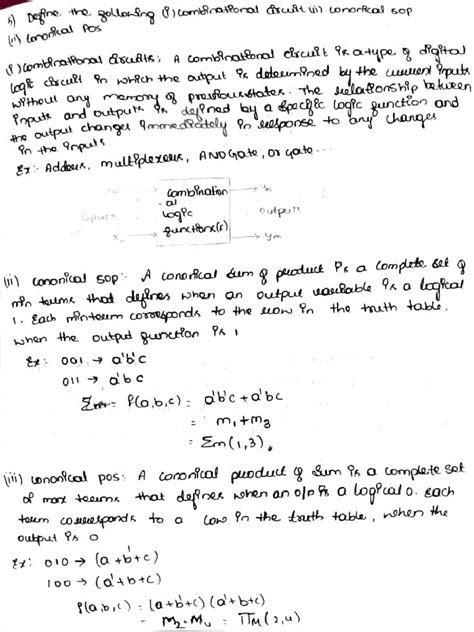 5) Define the following (i) combinational circuit (ii) canonical sop
(iii) canonical pos
(i) combinational circuits: A combinational circuit is a type of digital
logic circuit in which the output is determined by the current inputs
without any memory of previous states. The relationship between
inputs and outputs is defined by a specific logic function and
the output changes immediately in response to any changes
in the inputs
Ex:- Adders, multiplexers, AND Gate, or gate ...
combination
al
logic
functions(f)
Inputs
outputs
x
ym
(ii) canonical sop: A canonical sum of product is a complete set of
min terms that defines when an output variable is a logical
1. Each minterm corresponds to the row in the truth table.
when the output function is 1
Ex: 001 → a'b'c
011 → a'bc
f(a,b,c) = a'b'c + a'bc
= m₁+m₃
= Σm(1,3)
(iii) canonical pos: A canonical product of sum is a complete set
of max terms that defines when an o/p is a logical 0. Each
term corresponds to a low in the truth table, when the
output is 0
Ex: 010 → (a+b'+c)
100 → (a'+b+c)
f(a,b,c) = (a+b'+c) (a'+b+c)
= M₂.M₄ = ΠM(2,4)